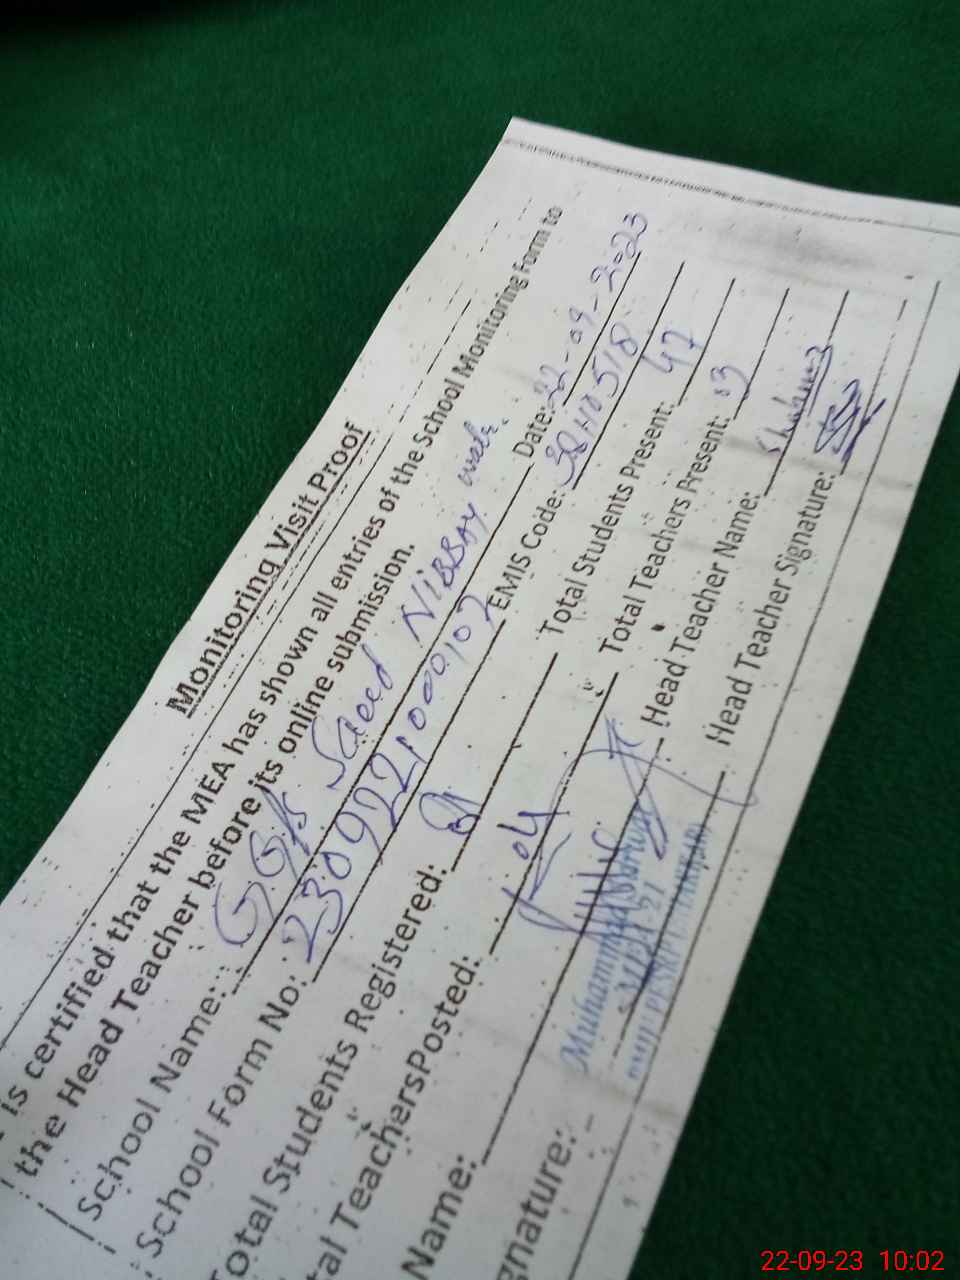 Monitoring Visit Proof
is certified that the MEA has shown all entries of the School Monitoring Form to
the Head Teacher before its online submission.
School Name: GGPS Saeed NiBBAY wala. Date: 22-09-2023
School Form No: 2309221000107 EMIS Code: 38410518
Total Students Registered: Total Students Present: 47
tal TeachersPosted: 04 Total Teachers Present: 03
Name: Head Teacher Name:
gnature: Head Teacher Signature:
Muhammad
22-09-23 10:02